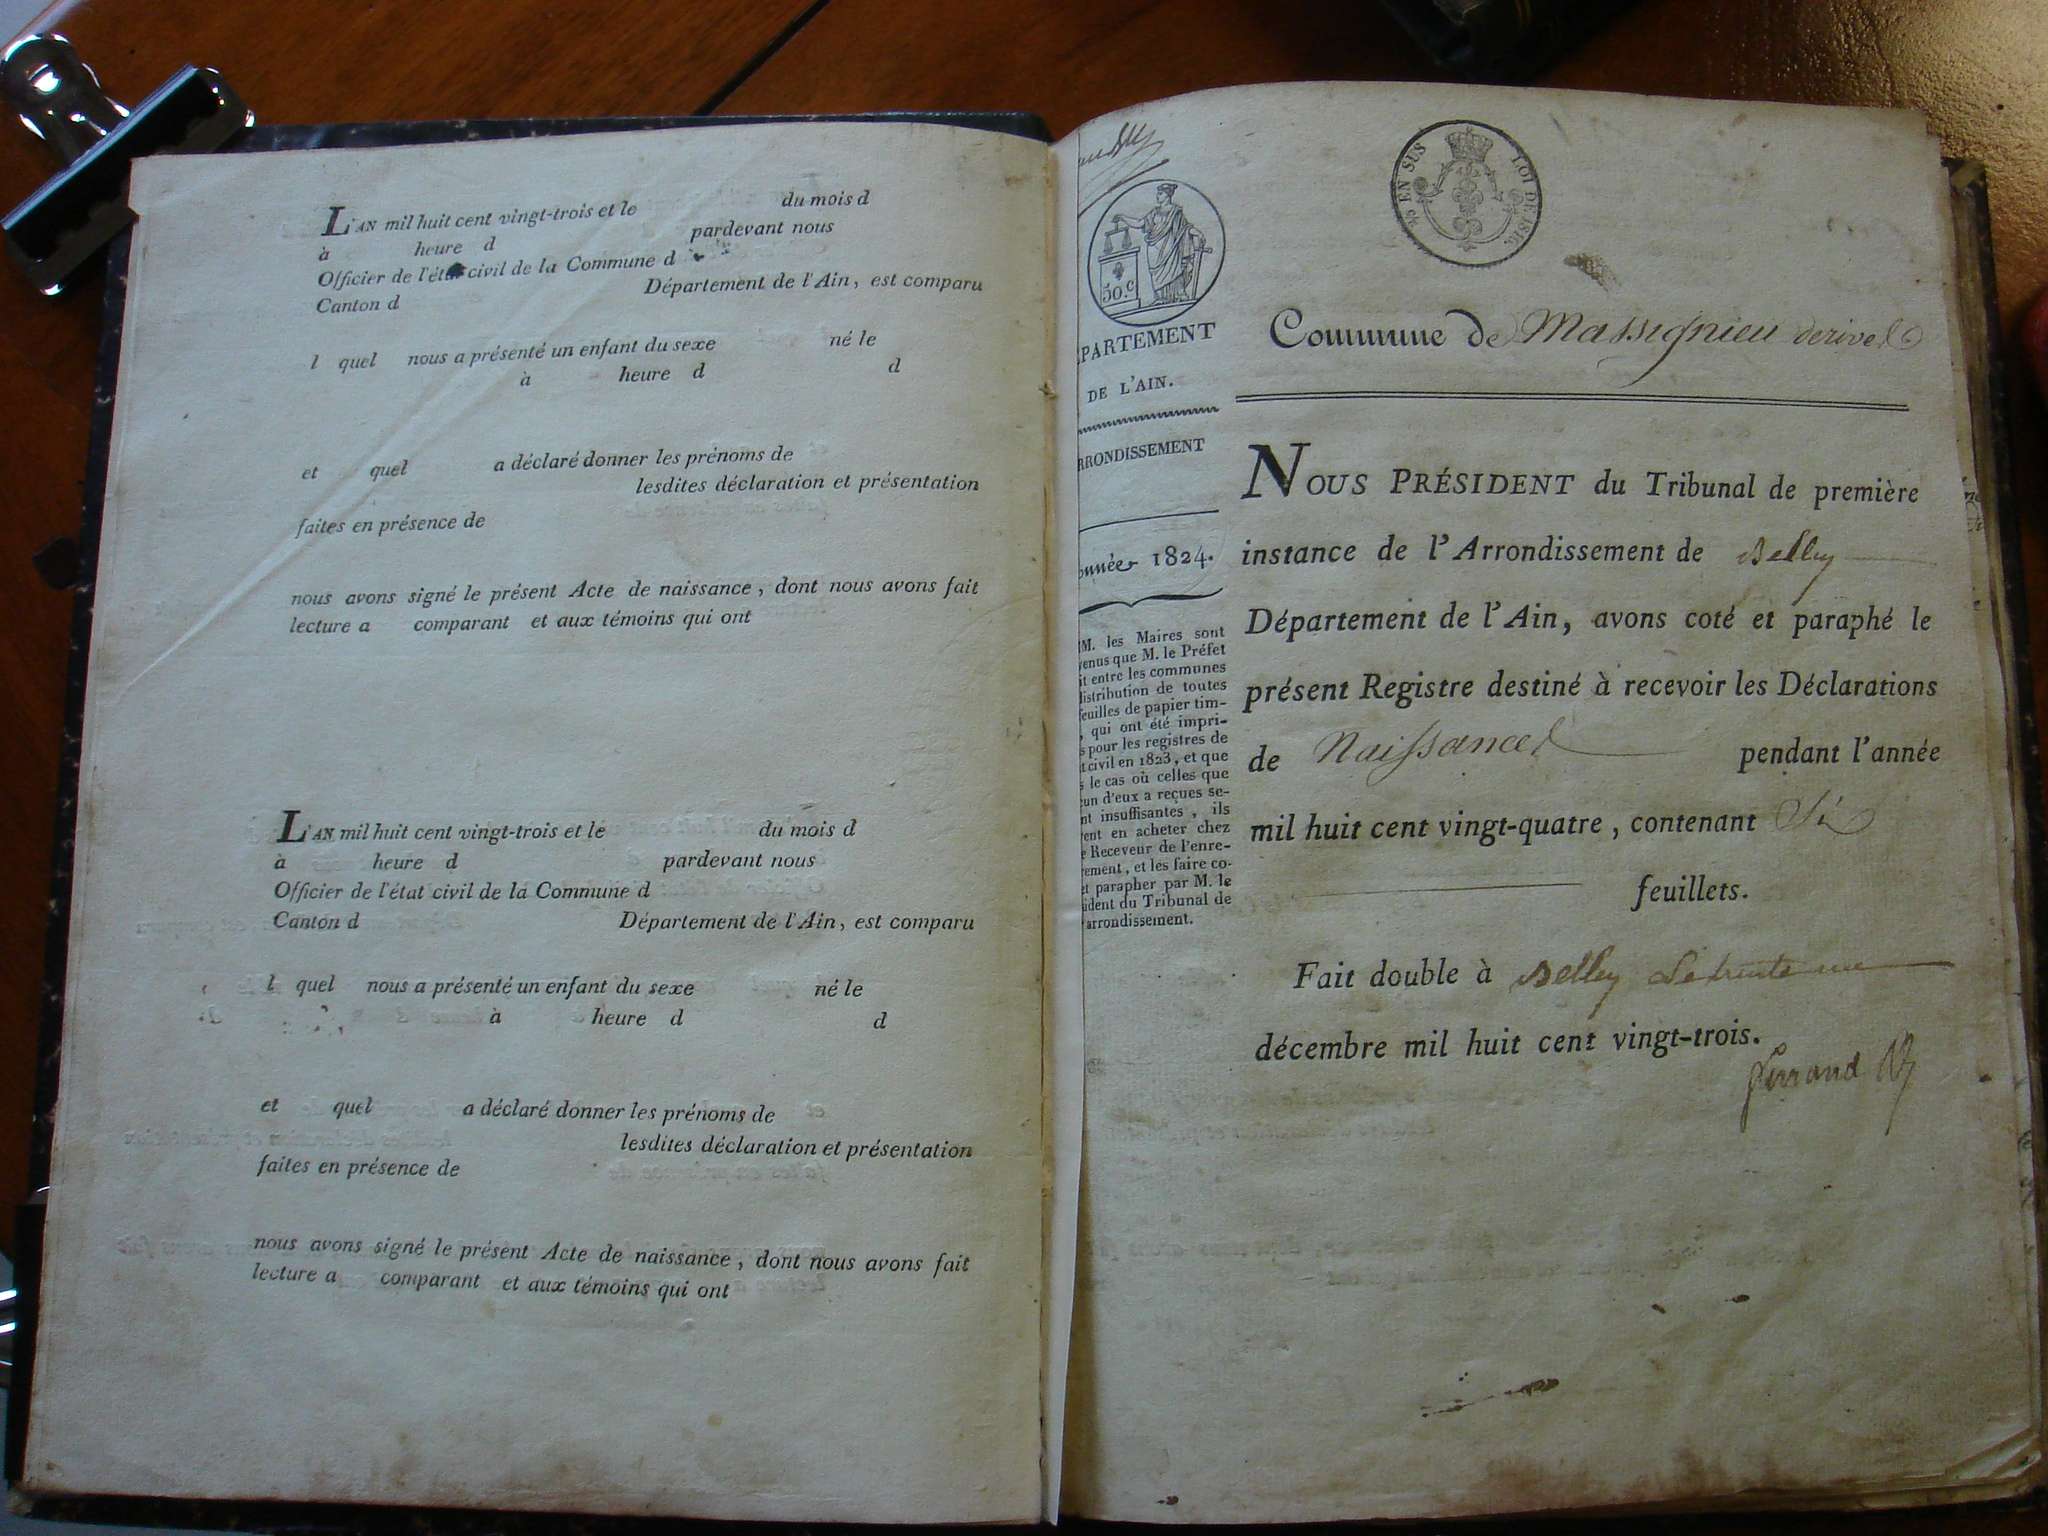 L'AN mil huit cent vingt-trois et le du mois d
à heure d pardevant nous
Officier de l'état civil de la Commune d
Canton d Département de l'Ain, est comparu
l quel nous a présenté un enfant du sexe né le
à heure d d
et quel a déclaré donner les prénoms de
lesdites déclaration et présentation
faites en présence de
nous avons signé le présent Acte de naissance, dont nous avons fait
lecture a comparant et aux témoins qui ont
L'AN mil huit cent vingt-trois et le du mois d
à heure d pardevant nous
Officier de l'état civil de la Commune d
Canton d Département de l'Ain, est comparu
l quel nous a présenté un enfant du sexe né le
à heure d d
et quel a déclaré donner les prénoms de
lesdites déclaration et présentation
faites en présence de
nous avons signé le présent Acte de naissance, dont nous avons fait
lecture a comparant et aux témoins qui ont
50.c
PARTEMENT
DE L'AIN.
RRONDISSEMENT
onnée 1824.
M. les Maires sont
venus que M. le Préfet
it entre les communes
distribution de toutes
feuilles de papier tim-
, qui ont été impri-
s pour les registres de
t civil en 1823, et que
s le cas où celles que
un d'eux a reçues se-
nt insuffisantes, ils
rent en acheter chez
e Receveur de l'enre-
rement, et les faire co-
et parapher par M. le
ident du Tribunal de
arrondissement.
EN SUS LOI DE 1816.
Commune de Massignieu derives
NOUS PRÉSIDENT du Tribunal de première
instance de l'Arrondissement de Belley
Département de l'Ain, avons coté et paraphé le
présent Registre destiné à recevoir les Déclarations
de Naissances pendant l'année
mil huit cent vingt-quatre, contenant Six
feuillets.
Fait double à Belley Le trente une
décembre mil huit cent vingt-trois.
Ferrand